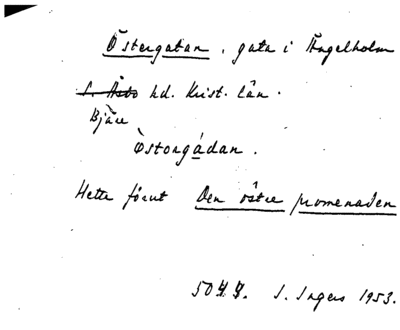 Östergatan, gata i Ängelholm
S. Åsbo hd. Krist. län.
Bjäre
Östorgádan.
Hette förut Den östre promenaden
50 S. Ingers 1953.